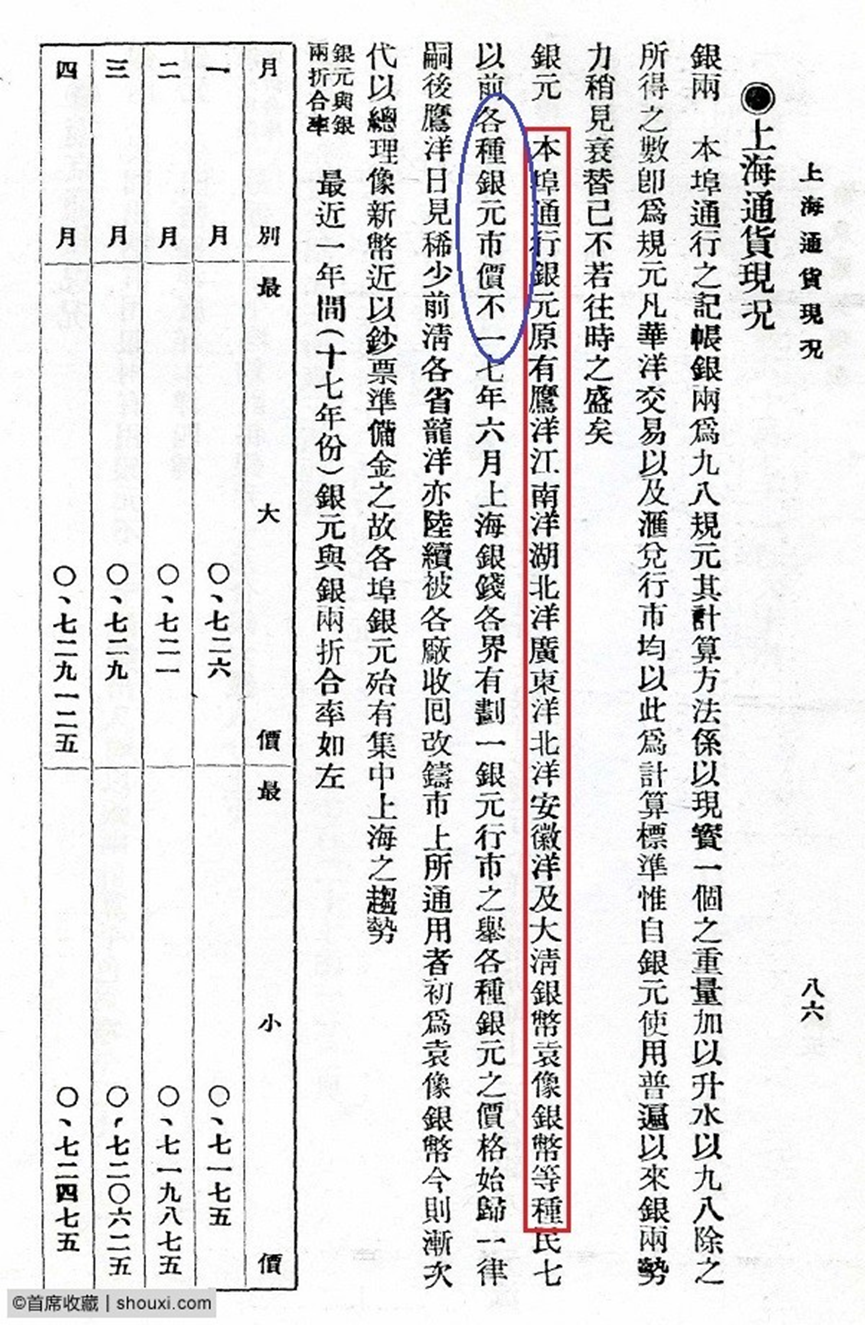 上海通貨現況
八六
上海通貨現況
銀兩　本埠通行之記帳銀兩爲九八規元其計算方法係以現寳一個之重量加以升水以九八除之
所得之數卽爲規元凡華洋交易以及滙兌行市均以此爲計算標準惟自銀元使用普遍以來銀兩勢
力稍見衰替已不若往時之盛矣
銀元　本埠通行銀元原有鷹洋江南洋湖北洋廣東洋北洋安徽洋及大淸銀幣袁像銀幣等種民七
以前各種銀元市價不一七年六月上海銀錢各界有劃一銀元行市之舉各種銀元之價格始歸一律
嗣後鷹洋日見稀少前淸各省龍洋亦陸續被各廠收囘改鑄市上所通用者初爲袁像銀幣今則漸次
代以總理像新幣近以鈔票準備金之故各埠銀元殆有集中上海之趨勢
銀元與銀兩折合率　最近一年間（十七年份）銀元與銀兩折合率如左
月別　最大價　最小價
一月　〇、七二六　〇、七一七五
二月　〇、七二一　〇、七一九八七五
三月　〇、七二九　〇、七二〇六二五
四月　〇、七二九一二五　〇、七二四七五
©首席收藏 | shouxi.com